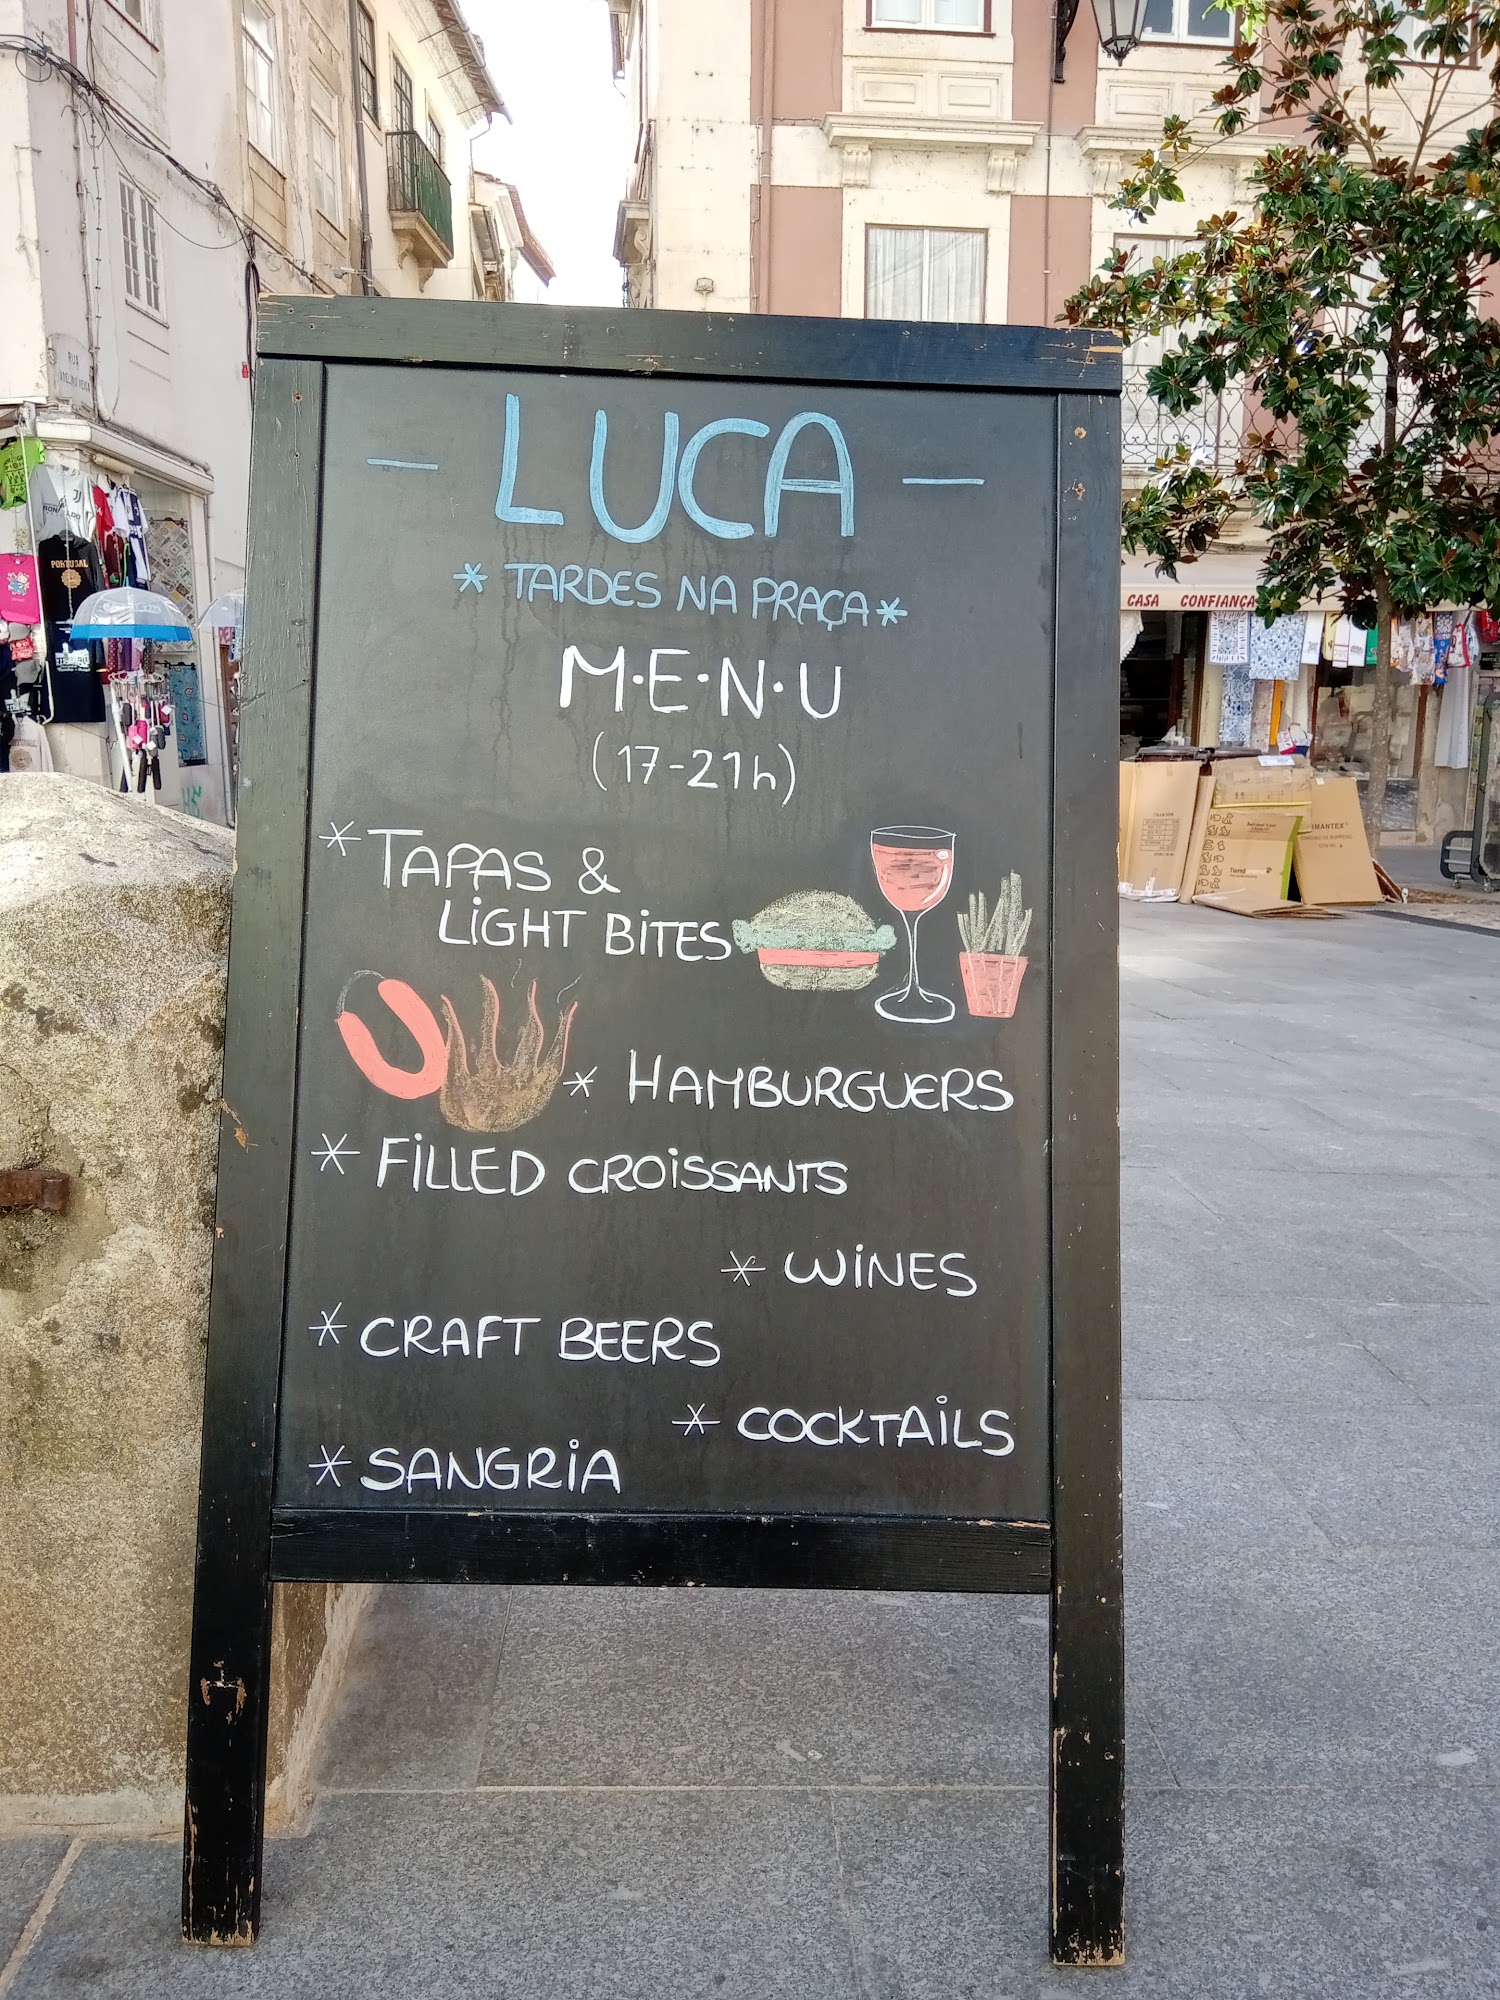 — LUCA —
* TARDES NA PRAÇA *
M·E·N·U
(17-21h)
* TAPAS &
LIGHT BITES
* HAMBURGUERS
* FILLED CROISSANTS
* WINES
* CRAFT BEERS
* COCKTAILS
* SANGRIA
RUA
PORTUGAL
CASA CONFIANÇA